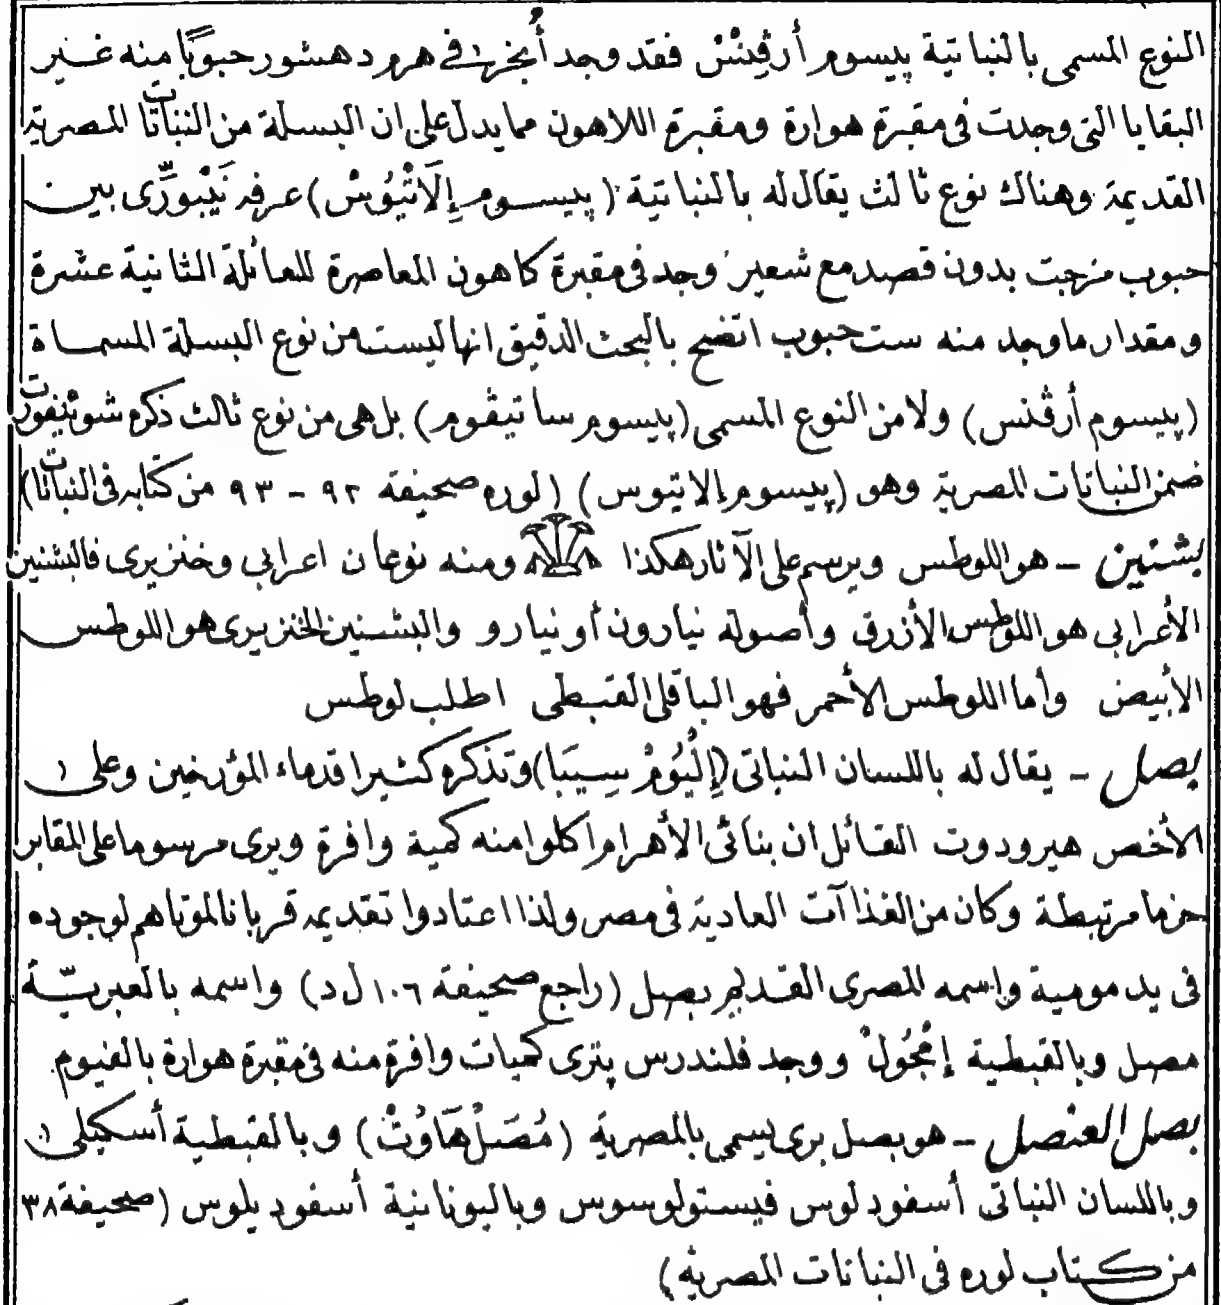 النوع المسمى بالنباتية پيسوم أرڤِنْسْ فقد وجد أُنجِرْ فى هرم دهشور حبوبًا منه غير
البقايا التى وجدت فى مقبرة هوارة ومقبرة اللاهون مما يدل على ان البسلة من النباتات المصرية
القديمة وهناك نوع ثالث يقال له بالنباتية (پيسوم إِلَاتْيُوسْ) عرفه نَيْبورِّى بين
حبوب مزجت بدون قصد مع شعير وجد فى مقبرة كاهون المعاصرة للعائلة الثانية عشرة
ومقدار ما وجد منه ست حبوب اتضح بالبحث الدقيق انها ليست من نوع البسلة المسماة
(پيسوم أرڤنس) ولا من النوع المسمى (پيسوم ساتيڤوم) بل هى من نوع ثالث ذكره شوئنفورت
ضمن النباتات المصرية وهو (پيسوم إلاتيوس) (لوره صحيفة ٩٢ - ٩٣ من كتابه فى النباتات)
بشنين - هو اللوطس ويرسم على الآثار هكذا ومنه نوعان اعرابى وخنزيرى فالبشنين
الأعرابى هو اللوطس الأزرق وأصوله نيارون أو نيارو والبشنين الخنزيرى هو اللوطس
الأبيض وأما اللوطس الأحمر فهو الباقلى القبطى اطلب لوطس
بصل - يقال له باللسان النباتى (إِلْيُومْ سِيپَا) وتذكره كثيرا قدماء المؤرخين وعلى
الأخص هيرودوت القائل ان بنائى الأهرام اكلوا منه كمية وافرة ويرى مرسوما على المقابر
حزما مرتبطة وكان من الغذاآت العادية فى مصر ولذا اعتادوا تقديمه قربانا لموتاهم لوجوده
فى يد مومية واسمه المصرى القديم بصل (راجع صحيفة ١٠٦ ل د) واسمه بالعبريّة
مصل وبالقبطية إمْجُولْ ووجد فلندرس پترى كميات وافرة منه فى مقبرة هوارة بالفيوم.
بصل العنصل - هو بصل برى يسمى بالمصرية (مُصَلْ هَاوُتْ) وبالقبطية أسكيلى
وباللسان النباتى أسفودلوس فيستولوسوس وباليونانية أسفوديلوس (صحيفة ٣٨
من كتاب لوره فى النباتات المصرية)